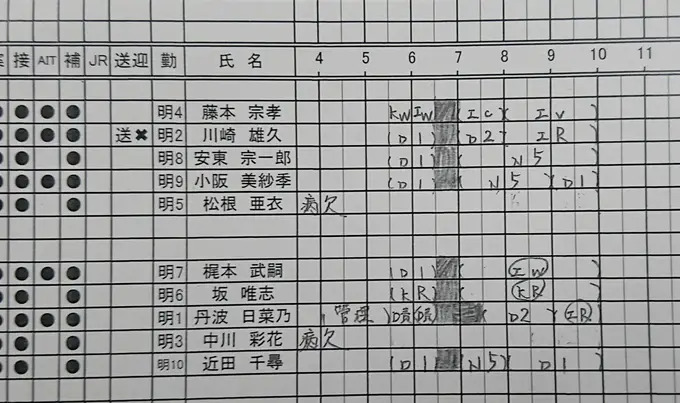 接 AIT 補 JR 送迎 勤 氏 名 4 5 6 7 8 9 10 11
明4 藤本 宗孝 KW IW (I C)( I V )
送✖ 明2 川崎 雄久 (D 1) (D2)( I R )
明8 安東 宗一郎 (D 1) ( N 5 )
明9 小阪 美紗季 (D 1) ( N 5 )(D1)
明5 松根 亜衣 病欠
明7 梶本 武嗣 (D 1) ( IW )
明6 坂 唯志 (K R) ( KR )
明1 丹波 日菜乃 ( 管理 ) ( D2 )(IR)
明3 中川 彩花 病欠
明10 近田 千尋 (D 1) (N5)( D 1 )